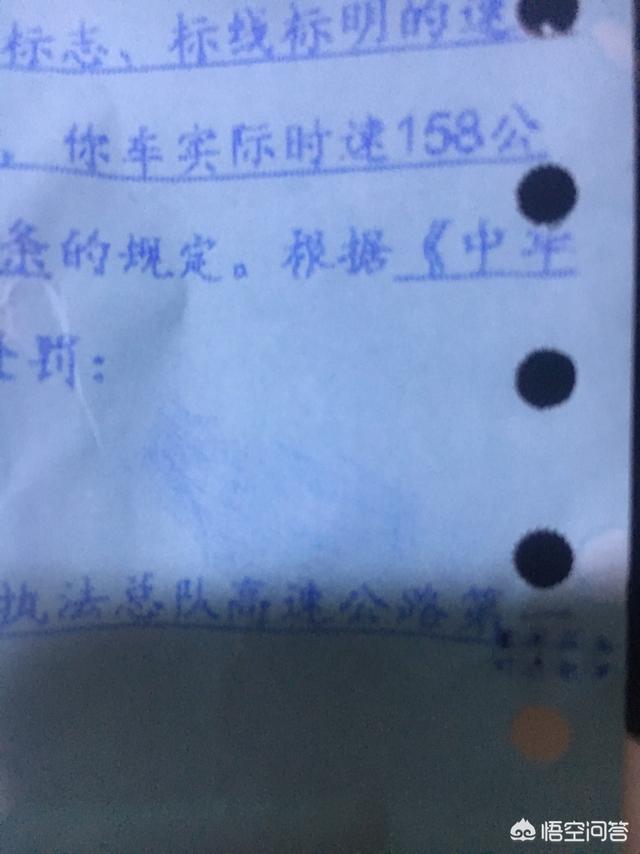 标志、标线标明的速
，你车实际时速158公
条的规定。根据《中华
处罚：
执法总队高速公路第一
悟空问答